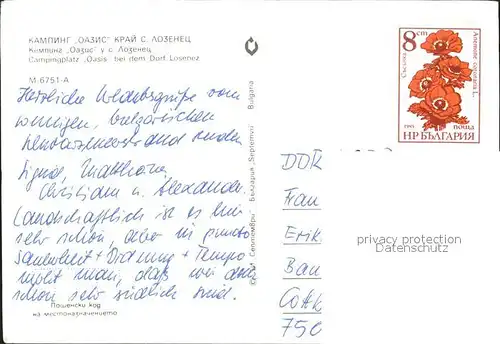 КАМПИНГ „ОАЗИС" КРАЙ С. ЛОЗЕНЕЦ
Кампинг „Оазис" у с. Лозенец
Campingplatz „Oasis" bei dem Dorf Losenez
М-6751-А
Herzliche Urlaubsgrüße vom
sonnigen, bulgarischen
Schwarzmeerstrand senden
Sigrid, Matthias,
Christian u. Alexander.
Landschaftlich ist es hier
sehr schön, aber in puncto
Sauberkeit + Ordnung + Tempo
merkt man, daß wir eben
schon sehr südlich sind.
Пощенски код
на местоназначението
Септември България „Septemvri" Bulgaria
8 ст
Съсънка
Anemone coronaria L.
поща
НР БЪЛГАРИЯ
DDR
Frau
Erik
Bau
Cott
750
privacy protection
Datenschutz